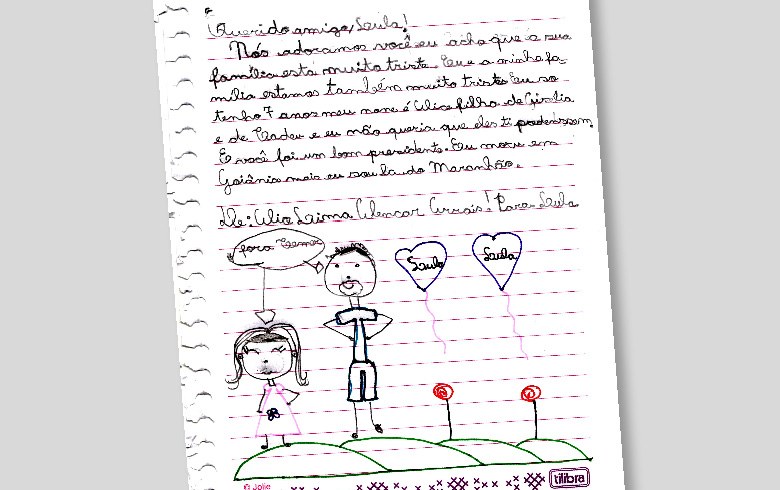 Querido amigo, Lula!
Nós adoramos você eu acho que a sua
família está muito triste. Eu e a minha fa-
mília estamos também muito triste Eu so
tenho 7 anos meu nome é Alice filha de Gislia
e de Tadeu e eu não queria que eles ti podessem.
E você foi um bom presidente. Eu moro em
Goiânia mais eu sou la do Maranhão.
De: Alencar Arrais! Para Lula
fora Temer
Lula
Lula
© Jolie
tilibra